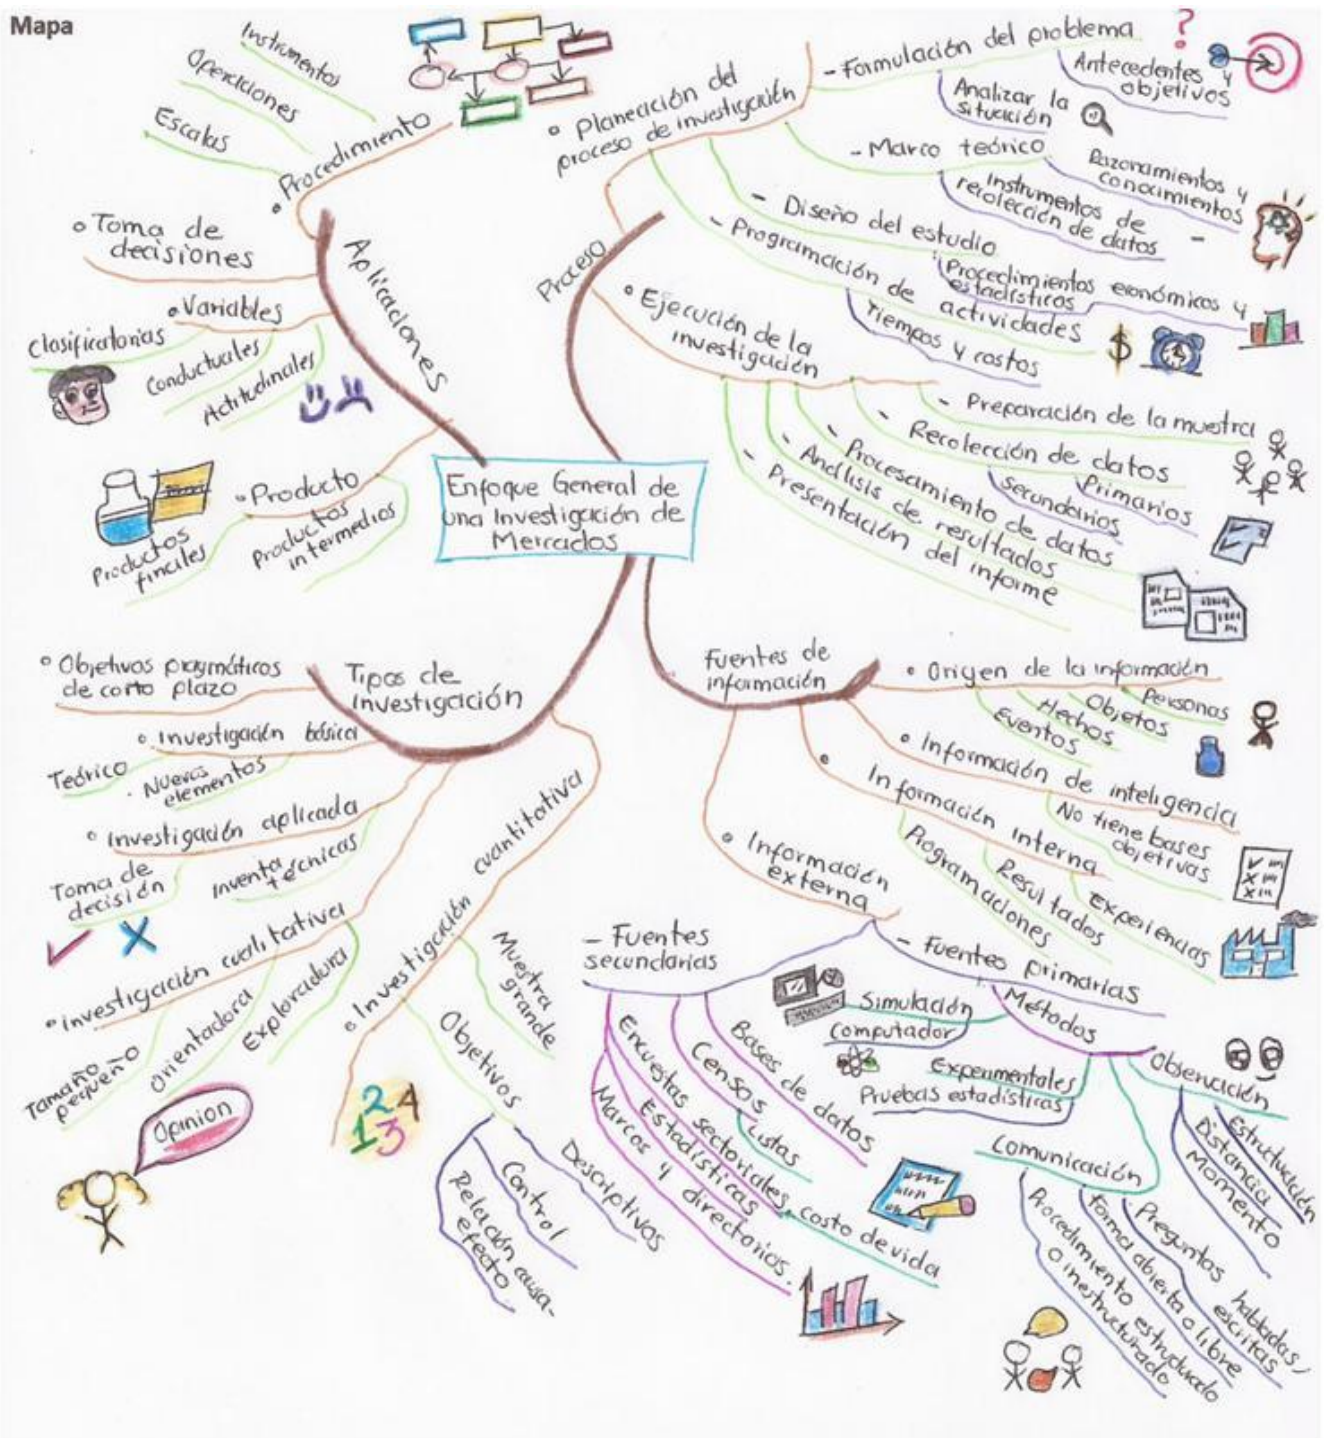 Mapa
Enfoque General de
una Investigación de
Mercados
Proceso
Planeación del
proceso de investigación
- Formulación del problema
?
Antecedentes y
objetivos
Analizar la
situación
- Marco teórico
Razonamientos y
conocimientos
Instrumentos de
recolección de datos
- Diseño del estudio
Procedimientos económicos y
estadísticos
- Programación de actividades
Tiempos y costos
$
Ejecución de la
investigación
- Preparación de la muestra
- Recolección de datos
Primarios
Secundarios
- Procesamiento de datos
- Análisis de resultados
- Presentación del informe
Fuentes de
información
Origen de la información
Personas
Objetos
Hechos
Eventos
Información de inteligencia
No tiene bases
objetivas
Información interna
Experiencias
Resultados
Programaciones
Información
externa
- Fuentes primarias
Métodos
Observación
Estructuración
Distancia
Momento
Comunicación
Preguntas habladas,
escritas
Forma abierta o libre
Procedimiento estructurado
o inestructurado
Experimentales
Pruebas estadísticas
Simulación
computador
- Fuentes
secundarias
Bases de datos
Censos
Listas
Encuestas sectoriales, costo de vida
Estadísticas
Marcos y directorios.
Tipos de
Investigación
Objetivos pragmáticos
de corto plazo
Investigación básica
Teórico
Nuevos
elementos
Investigación aplicada
Toma de
decisión
Inventa
técnicas
Investigación cualitativa
Tamaño
pequeño
Orientadora
Exploradora
Opinion
Investigación cuantitativa
Muestra
grande
Objetivos
Descriptivos
Control
Relación causa-
efecto
1 2 3 4
Aplicaciones
Procedimiento
Instrumentos
Operaciones
Escalas
Toma de
decisiones
Variables
Clasificatorias
Conductuales
Actitudinales
Producto
Productos
intermedios
Productos
finales